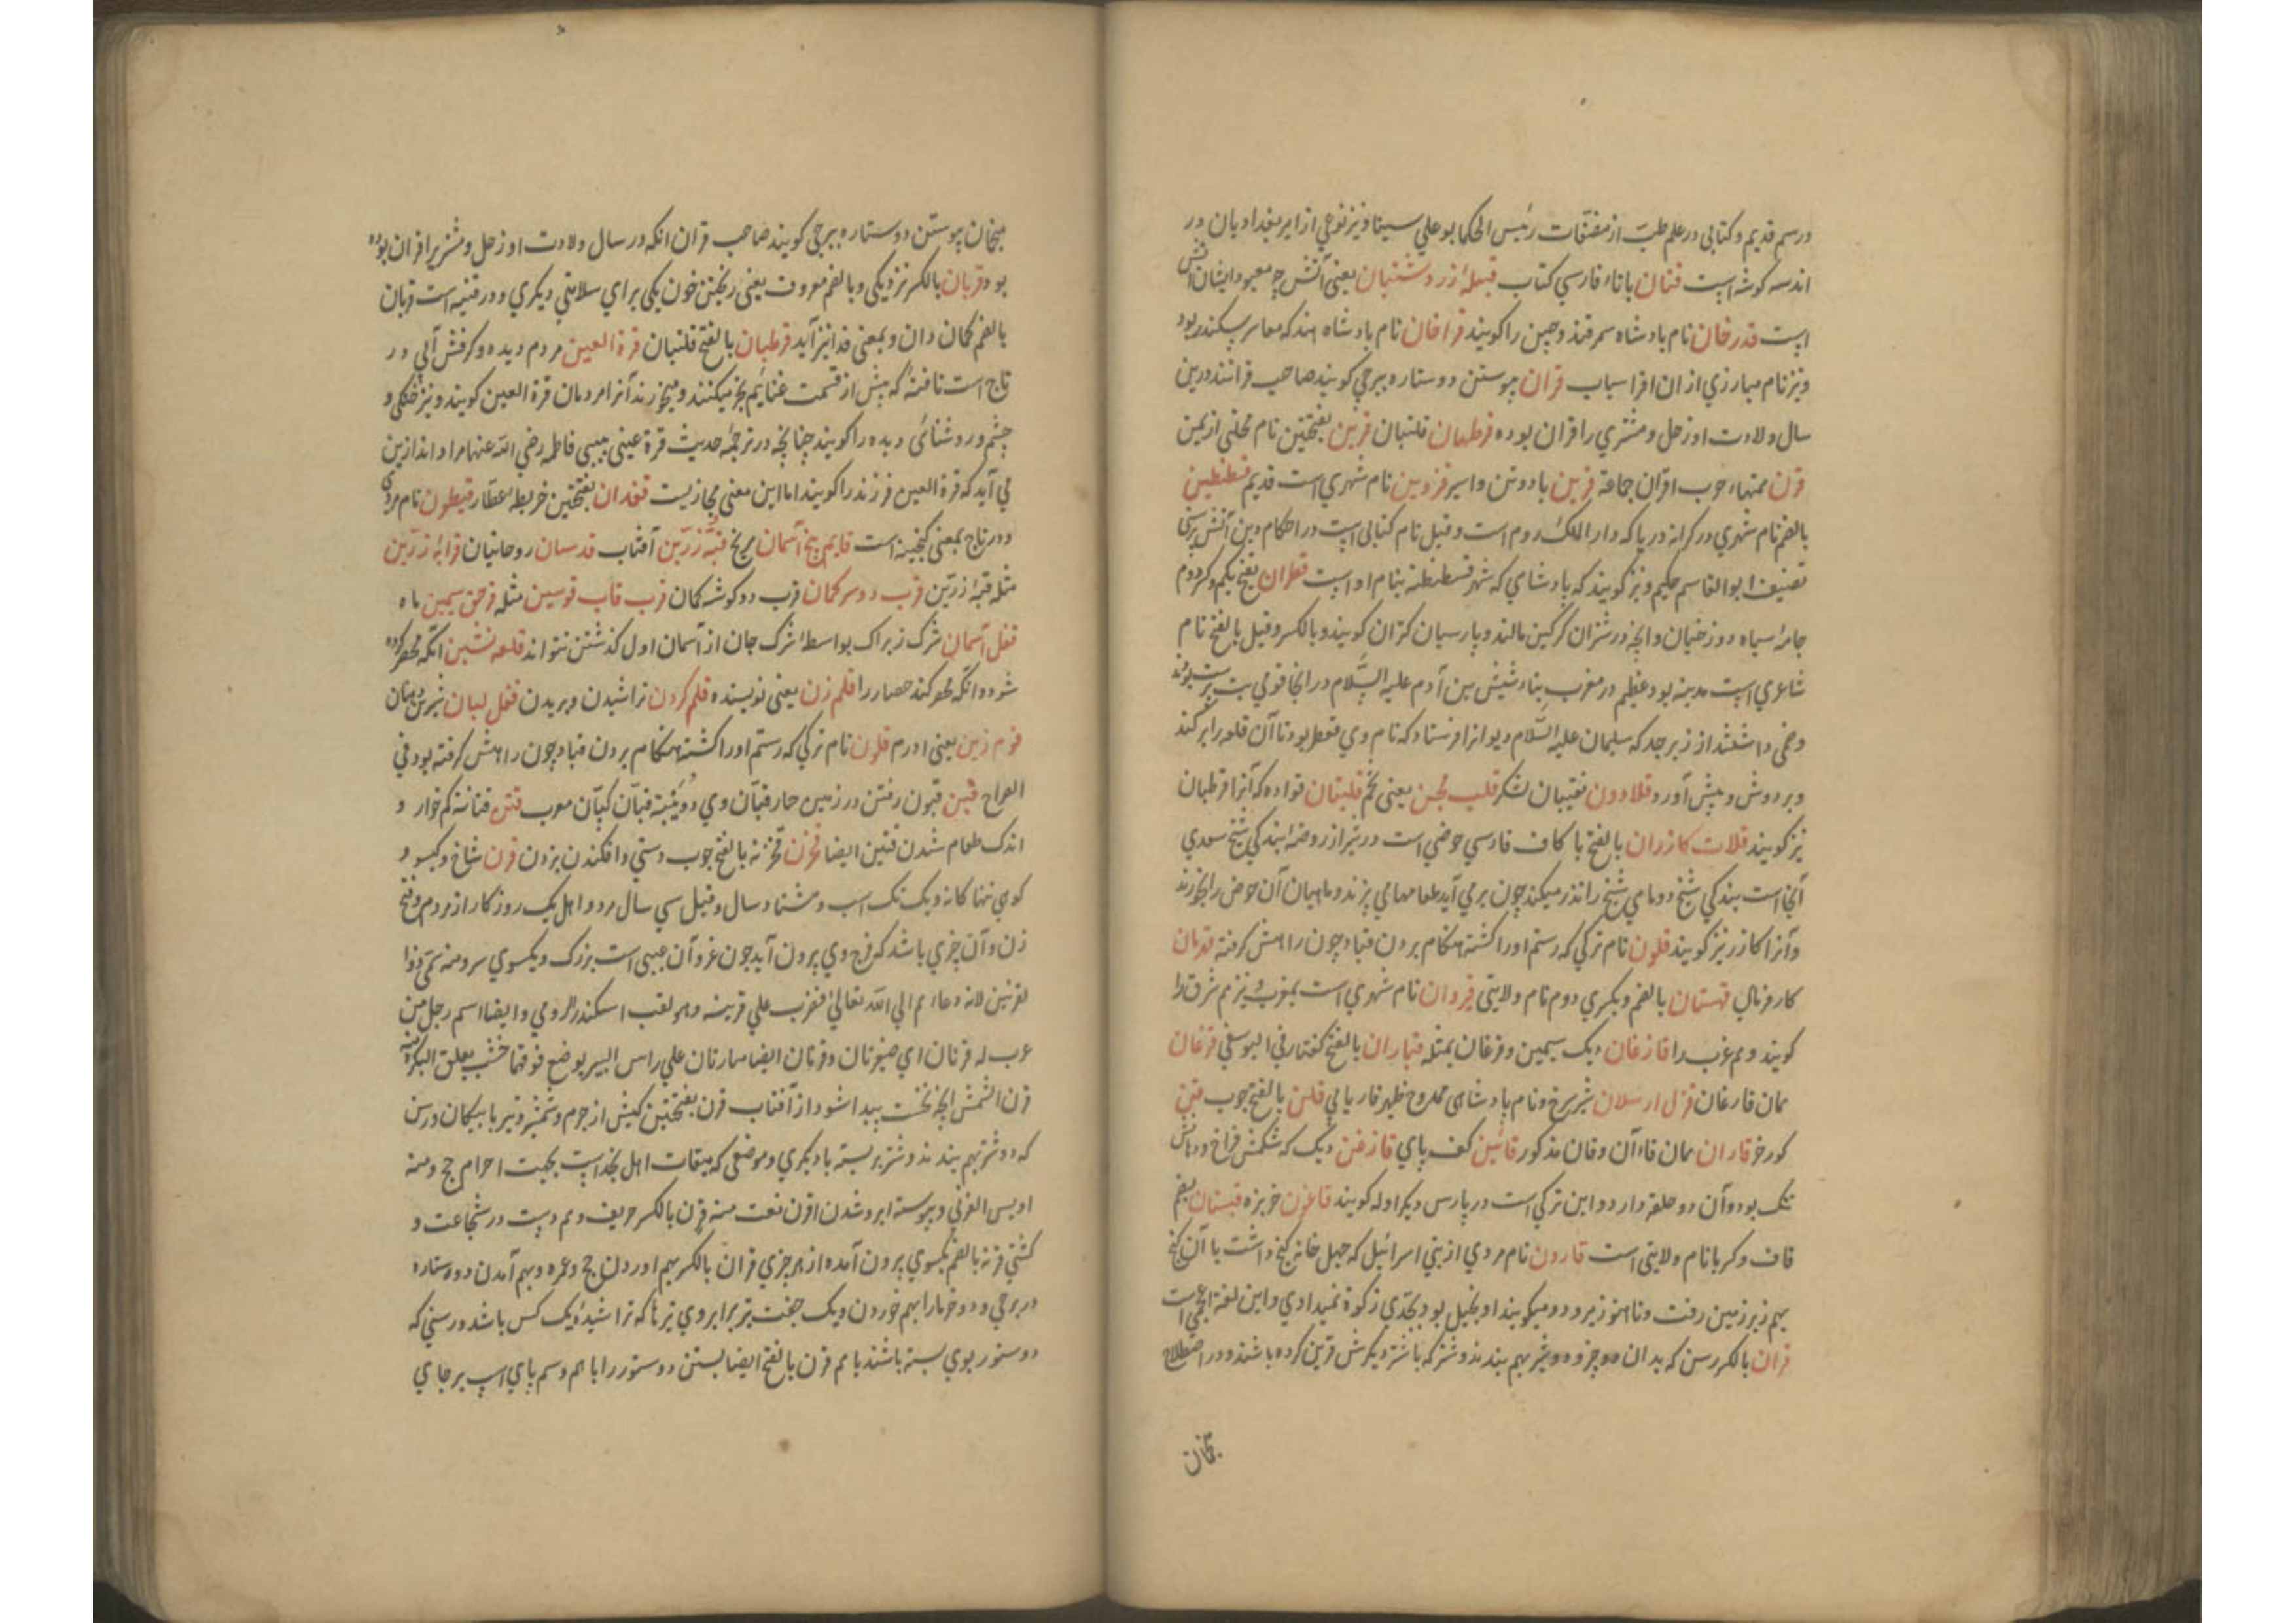 در رسم قدیم و کتابی در علم طب از مصنّفات رئیس الحکما بوعلي سینا و نیز نوعي از ابر بغدادیان در
اندسه کوشه است قنان با تاء فارسي کتاب قبلهٔ زردشتیان یعنی آتش چه معبود ایشان آتش
است قدرخان نام بادشاه سمرقند و چین را کویند قراخان نام بادشاه هند که معاصر سکندر بود
و نیز نام مبارزي از ان افراسیاب قران پیوستن دو ستاره ببرجي کویند صاحب قرانند درین
سال ولادت او زحل و مشتري را قران بوده قرطبان قلتبان قرین بفتحتین نام محلتی از یمن
قرن بمنهاء حرب اقران جماعة قرین یار و تن و اسیر قزوین نام شهري است قدیم قسطنطین
بالضم نام شهري در کرانه دریا که دار الملک روم است و قیل نام کتابی است در احکام دین آتش پرستی
تصنیف ابوالقاسم حکیم و نیز کویند که بادشاي که شهر قسطنطنه بنام او است قطران بفتح یکم و کسر دوم
جامهٔ سیاه دوزخیان و انچه در شتران کرکین مالند و پارسیان کتران کویند و بالکسر و قیل بالفتح نام
شاعري است مدینه بود عظیم در مغرب بناء شیث بن آدم علیه السّلام در انجا قومي بت پرست بودند
و خمي داشتند از زبرجد که سلیمان علیه السّلام دیوانرا فرستاد که نام وي قفعل بود تا آن قلعه را برکند
و بر دوش و پیش آورد قلاوون نقیبان لشکر قلب مجن یعنی نجم قلتبان قواده که آنرا قرطبان
نیز کویند قلات کازران بالفتح با کاف فارسي حوضي است در شیراز روضهٔ بندکي شیخ سعدي
آنجا است بندکي شیخ دو ماهي شیخ را نذر میکند چون برمي آید طعامها مي پزند و ماهیان آن حوض را بخورند
و آنرا کازر نیز کویند قلون نام ترکي که رستم او را کشته هنکام بردن قباد چون راهش کرفته قدمان
کار فرنال قهستان بالضم و بکسري دوم نام ولایتی قیروان نام شهري است بمغرب و نیز هم شرق را
کویند و هم غرب را قازغان دیک سیمین و قرغان بمثله قباران بالفتح کفتار في الیوسفي قزغان
همان قارغان قزل ارسلان شیر سرخ و نام بادشاهي ممدوح ظهیر فاریابي قلن بالفتح چوب قین
کورخر قاران همان قاءآن و قان مذکور قائین کف پاي قازخن دیک که شکمش فراخ و دهانش
تنک بود و آن دو حلقه دارد و این ترکي است در پارس دیکر اوله کویند قاغون خربزه قبستان بضم
قاف و کر با نام ولایتی است قارون نام مردي از بني اسرائیل که چهل خانه کنج داشت با آن کنج
بهم زیر زمین رفت و تا هنوز میرود و میکویند او بخیل بود بحدّي زکوة نمیدادي و این لغة عجمي است
قران بالکسر رسن که بدان دو چیز و دو شتر بهم بندند و شتر که با شتر دیکرش قرین کرده باشند و در اصطلاح
منجمان
منجمان پیوستن دو ستاره ببرجي کویند صاحب قران انکه در سال ولادت او زحل و مشتریرا قران بوده
بود قربان بالکسر نزدیکي و بالضم معروف یعنی ریختن خون یکي براي سلامتي دیکري و در قنیه است قربان
بالضم کمان دان و بمعنی فدا نیز آید قرطبان بالفتح قلتبان قرة العین مردم دیده و کرفش آبي و در
تاج است تافته که پیش از قسمت غنایم بخر میکنند و میخورند آنرا مردمان قرة العین کویند و نیز خنکي و
چشم و روشنائي دیده را کویند چنانچه در ترجمهٔ حدیث قرة عیني بیبي فاطمه رضي الله عنها مراد اند ازین
مي آید که قرة العین فرزند را کویند اما این معنی مجازیست قفدان بفتحتین خریطهٔ عطار قیطون نام مردي
و در تاج بمعنی کنجینه است قایم پنج آسمان مریخ قبّهٔ زرّین آفتاب قدسان روحانیان قرابهٔ زرّین
مثله قبّهٔ زرّین قرب دو سر کمان قرب دو کوشه کمان قرب قاب قوسین مثله قرص سیمین ماه
قفل آسمان شرک زیراک بواسطهٔ شرک جان از آسمان اول کذشتن نتواند قلعه نشین انکه محصر کرده
شود و انکه محو کند حصار را قلم زن یعنی نویسنده قلم کردن تراشیدن و بریدن قفل لبان شیرین دهنان
قوم زین یعنی ادرم قلون نام ترکي که رستم او را کشته هنکام بردن قباد چون راهش کرفته بود في
الصراح قبن قبون رفتن در زمین حار قبّان وي دویبة قبان کپّان معرب قتن قتانة کم خوار و
اندک طعام شدن قتین ایضا قحزن قحزنه بالفتح چوب دستي و افکندن بزدن قرن شاخ و کیسو و
کوهي تنها کانه و یک تک اسب و هشتاد سال و قیل سي سال مرد و اهل یک روزکار از مردم و فتح
زن و آن چیزي باشد که از فرج وي بیرون آید چون غرو آن عیبی است بزرک و یکسوي سر و منه سمّي ذوا
لقرنین لانه دعاهم الي الله تعالي فضرب علي قرنیه و هو لقب اسکندر الرومي و ایضا اسم رجل من
عرب له قرنان اي ضفرتان و قرنان ایضا منارتان علي راس البیر یوضع فوقهما خشب یعلق البکرة فیه
قرن الشمس انچه نخست پیدا شود از آفتاب قرن بفتحتین کیش از چرم و شمشیر و تیر با پیکان و رسن
که دو شتر بهم بندند و شتر بر بسته با دیکري و موضعي که میقات اهل نجد است بجهت احرام حج و منه
اویس القرني و پیوسته ابرو شدن اقرن نعت منه قرن بالکسر حریف و هم دست در شجاعت و
کشتي قرنه بالضم یکسوي بیرون آمده از هر چیزي قران بالکسر بهم آوردن حج و عمره و بهم آمدن دو ستاره
در برجي و دو خرما را بهم خوردن و یک جفت تیر برابر وي تیرها که تراشیدهٔ یک کس باشد و رسني که
دو ستور بوي بسته باشند با هم قرن بالفتح ایضا بستن دو ستور را با هم و سم پاي اسپ بر جاي